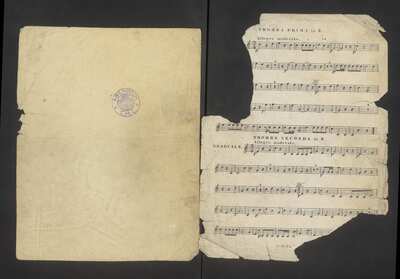 TROMBA PRIMA in E.
Allegro moderato.
TROMBA SECONDA in E.
Allegro moderato.
GRADUALE.